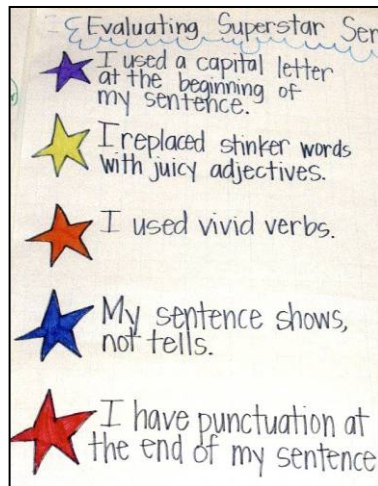 Evaluating Superstar Sen
I used a capital letter
at the beginning of
my sentence.
I replaced stinker words
with juicy adjectives.
I used vivid verbs.
My sentence shows,
not tells.
I have punctuation at
the end of my sentence